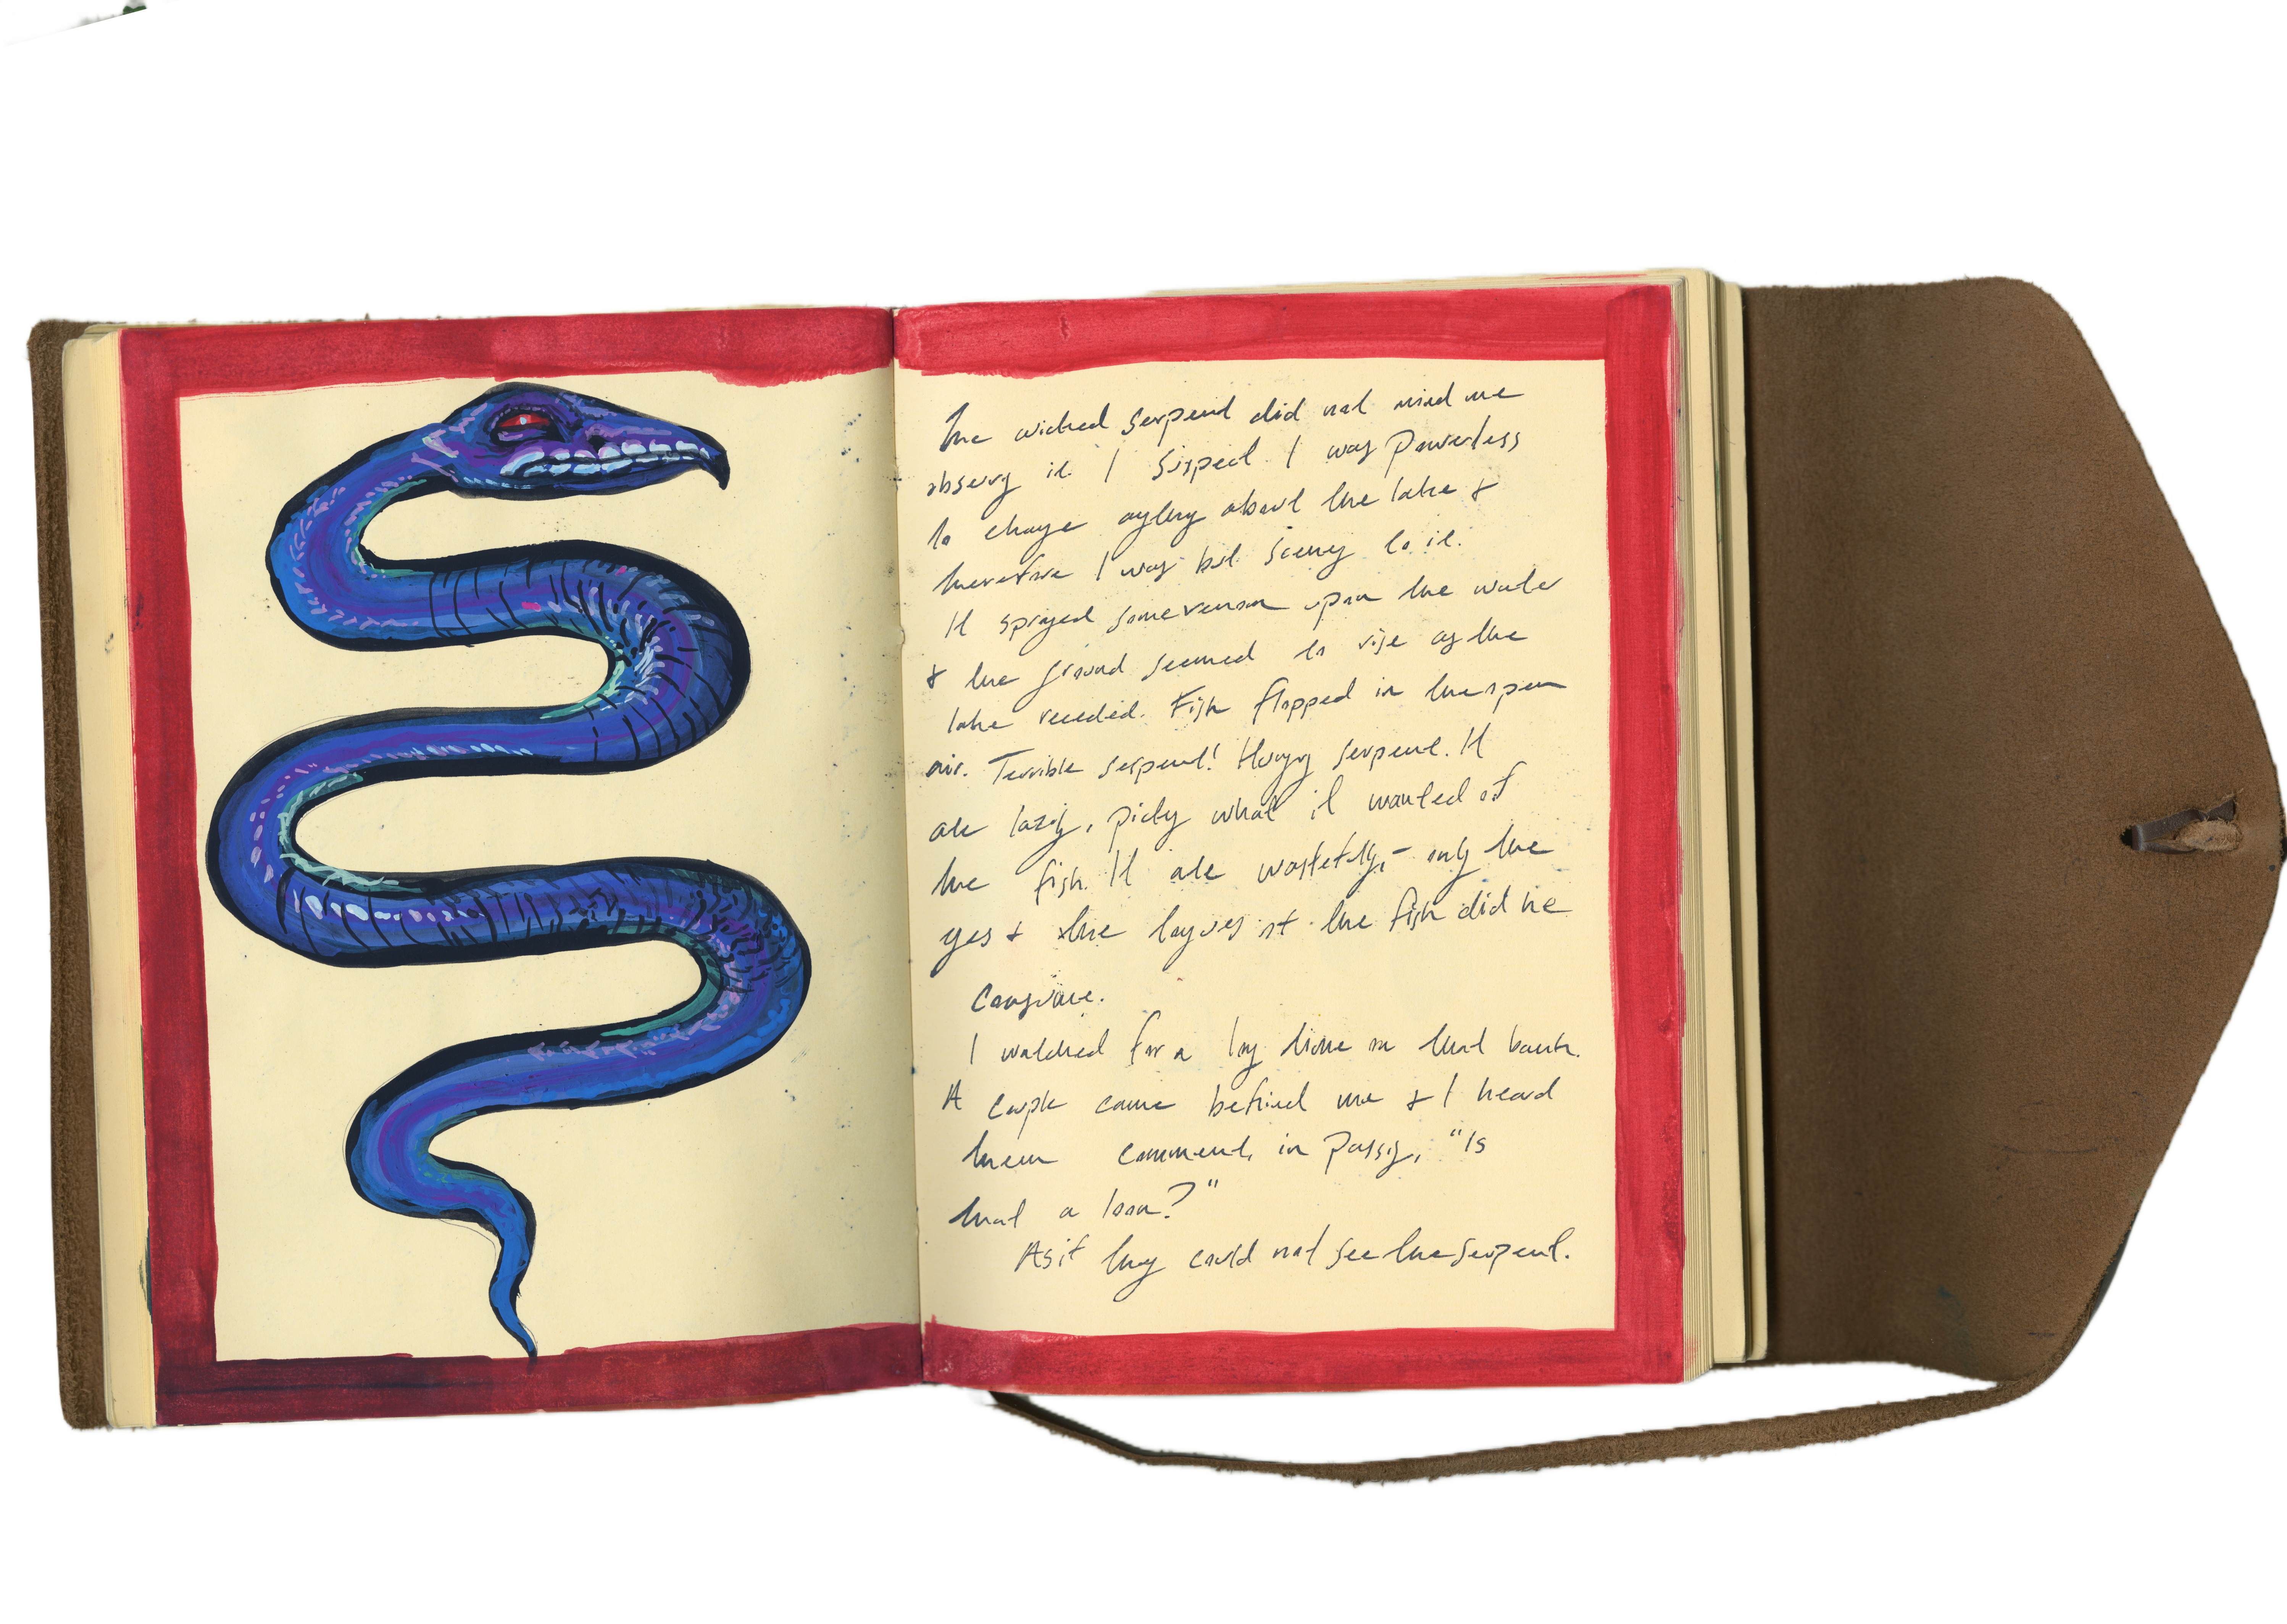 The wicked serpent did not mind me
observing it. I suspect I was powerless
to change anything about the lake &
therefore I was but scenery to it.
It sprayed some venom upon the water
& the ground seemed to rise as the
lake receded. Fish flopped in the open
air. Terrible serpent! Hungry serpent. It
ate lazily, picking what it wanted of
the fish. It ate wastefully, – only the
eyes & the tongues of the fish did he
consume.
I watched for a long time on that bank.
A couple came behind me & I heard
them comment, in passing, "Is
that a loon?"
As if they could not see the serpent.